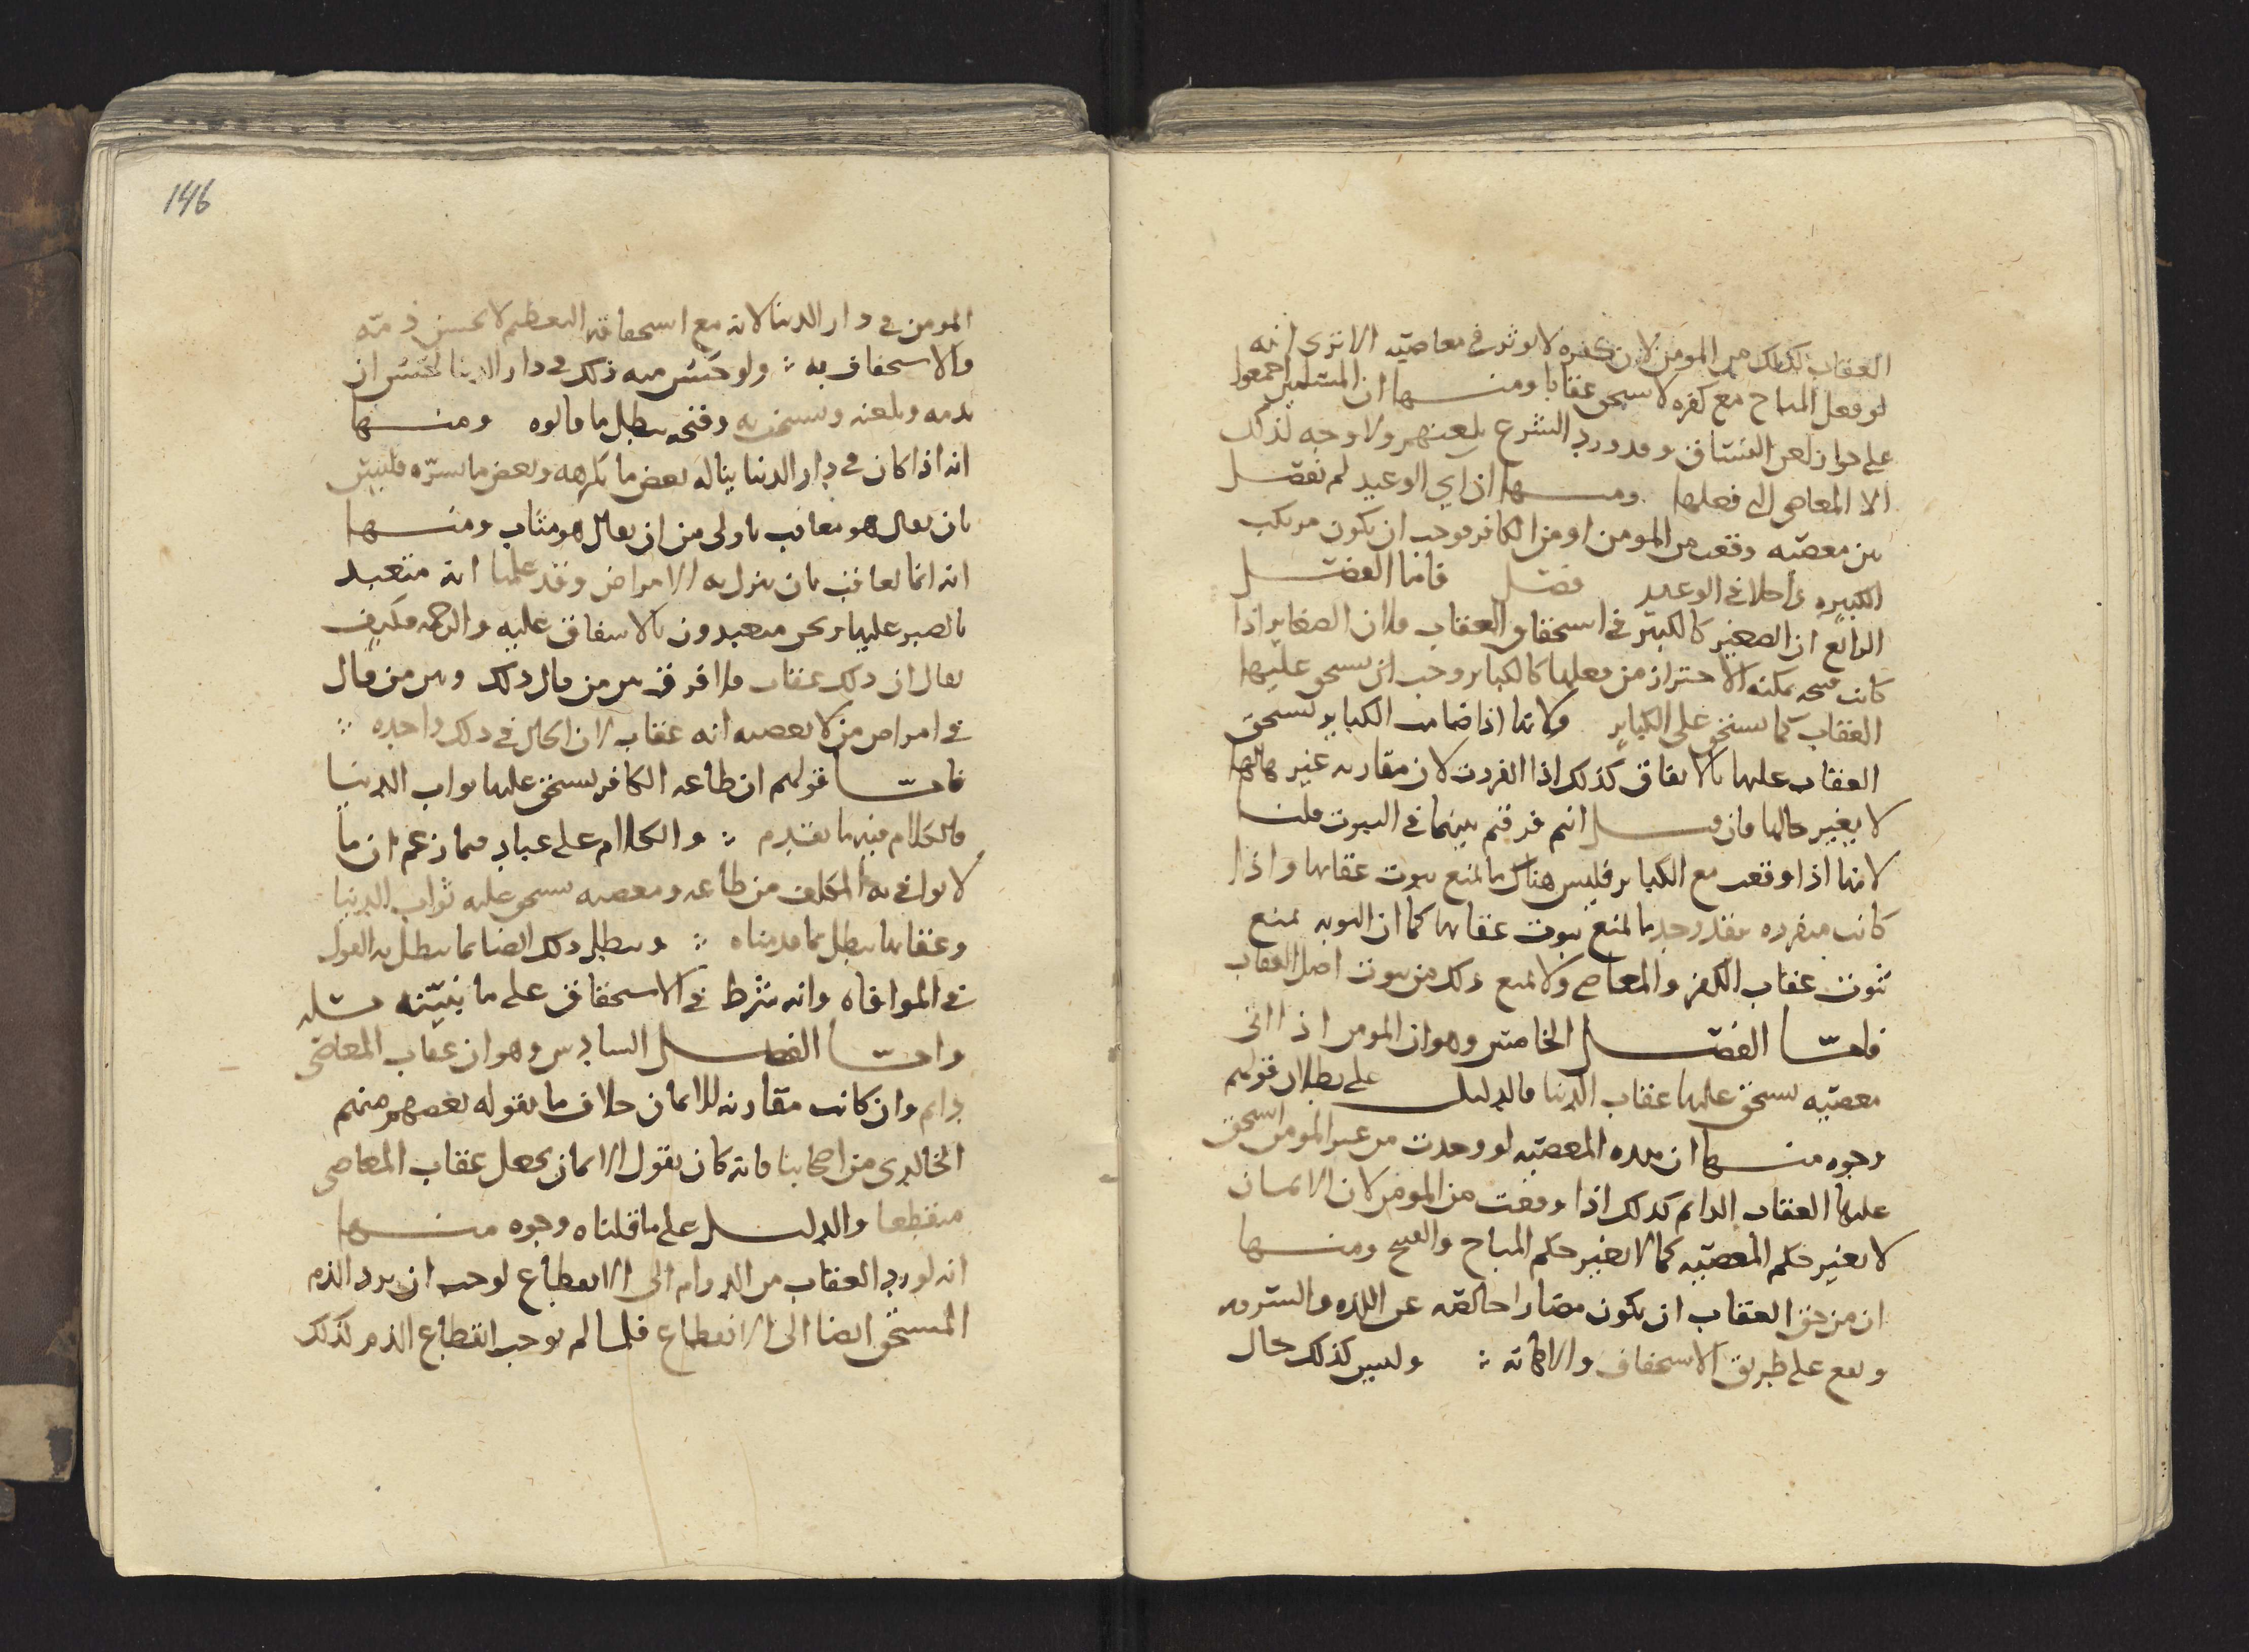 العقاب فكذلك من المومن لان كفره لا يوثر في معاصيه الا ترى انه
لو فعل المباح مع كفره لا يستحق عقابا ومنها ان المسلمين اجمعوا
على جواز لعن الفساق وقد ورد الشرع بلعنهم ولا وجه لذلك
الا المعاصي التي فعلوها ومنها ان آي الوعيد لم تفصل
بين معصيه وقعت من المومن او من الكافر فوجب ان يكون مرتكب
الكبيره داخلا في الوعيد فصل فاما الفصل
الرابع ان الصغير كالكبير في استحقاق العقاب فلان الصغاير اذا
كانت قبيحه يمكنه الاحتراز من فعلها كالكباير وجب ان يستحق عليها
العقاب كما يستحق على الكباير ولانها اذا ضامت الكباير يستحق
العقاب عليها بالاتفاق كذلك اذا انفردت لان مقارنه غيرها لها
لا يغير حالها فان قيل انتم فرقتم بينهما في الثبوت قلنا
لانها اذا وقعت مع الكباير فليس هناك ما يمنع ثبوت عقابها واذا
كانت منفرده فقد وجد ما يمنع ثبوت عقابها كما ان التوبه تمنع
ثبوت عقاب الكفر والمعاصي ولا تمنع ذلك من ثبوت اصل العقاب
فاما الفصل الخامس وهو ان المومن اذا اتى
معصيه يستحق عليها عقاب الدنيا فالدليل على بطلان قولهم
وجوه منها ان هذه المعصيه لو وجدت من غير المومن استحق
عليها العقاب الدايم كذلك اذا وقعت من المومن لان الايمان
لا يغير حكم المعصيه كما لا يغير حكم المباح والقبيح ومنها
ان من حق العقاب ان يكون مضار خالصه عن اللذه والسرور
ويقع على طريق الاستخفاف والاهانه وليس كذلك حال
146
المومن في دار الدنيا لانه مع استحقاقه التعظيم لا يحسن ذمته
والاستخفاف به ولو حسن منه ذلك في دار الدنيا لحسن ان
يذمه ويلعنه ويستخف به وقبحه يبطل ما قالوه ومنها
انه اذا كان في دار الدنيا يناله بعض ما يكرهه وبعض ما يسره فليس
بان يقال هو معاقب باولى من ان يقال هو مثاب ومنها
انه انما يعاقب بان ينزل به الامراض وقد علمنا انه متعبد
بالصبر عليها ونحن متعبدون بالاشفاق عليه والرحمه فكيف
يقال ان ذلك عقاب ولا فرق بين من قال ذلك وبين من قال
في امراض من لا يعصيه انه عقاب لان الحال في ذلك واحده
فاما قولهم ان طاعه الكافر يستحق عليها ثواب الدنيا
فالكلام فيه ما تقدم والكلام على عباد فيما زعم ان ما
لا يوافي به المكلف من طاعه ومعصيه يستحق عليه ثواب الدنيا
وعقابها يبطل بما قدمناه ويبطل ذلك ايضا بما يبطل به القول
في الموافاه وانه شرط في الاستحقاق على ما نبينه
واما الفصل السادس وهو ان عقاب المعاصي
دايم وان كانت مقارنه للايمان خلاف ما يقوله بعضهم منهم
الخالدي من اصحابنا فانه كان يقول الايمان يجعل عقاب المعاصي
منقطعا والدليل على ما قلناه وجوه منها
انه لو رد العقاب من الدوام الى الانقطاع لوجب ان يرد الذم
المستحق ايضا الى الانقطاع فلما لم يوجب انقطاع الذم كذلك